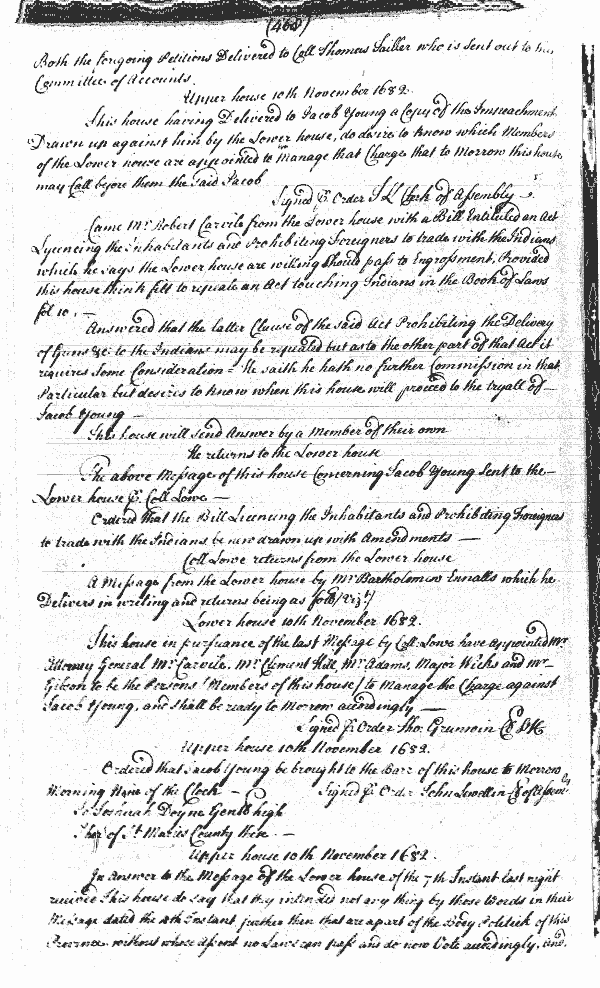 (468)
Both the foregoing Petitions Delivered to Coll Thomas Tailler who is Sent out to the
Committee of Accounts.
Upper house 10th November 1682.
This house having Delivered to Jacob Young a Copy of the Impeachment
Drawn up against him by the Lower house, do desire to know which Members
of the Lower house are appointed to manage that Charge that to Morrow this house
may Call before them the Said Jacob
Signed P. Order J Ll Clerk of Assembly
Came Mr. Robert Carvile from the Lower house with a Bill Entituled an Act
Lycencing the Inhabitants and Prohibiting Foreigners to trade with the Indians
which he says the Lower house are willing should pass to Engrossment, Provided
this house think fitt to repeale an Act touching Indians in the Book of Laws
fol 10. —
Answered that the latter Clause of the said Act Prohibiting the Delivery
of Guns &c to the Indians may be repealed but as to the other part of that Act it
requires Some Consideration = He saith he hath no further Commission in that
Particular but desires to know when this house will proceed to the tryall of —
Jacob Young —
This house will send Answer by a Member of their own
He returns to the Lower house
The above Message of this house Concerning Jacob Young Sent to the —
Lower house P. Coll Lowe —
Ordered that the Bill Licencing the Inhabitants and Prohibiting Foreigners
to trade with the Indians be new drawn up with Amendments —
Coll Lowe returns from the Lower house
A Message from the Lower house by Mr Bartholomew Ennalls which he
Delivers in writing and returns being as foll: (vizt)
Lower house 10th November 1682.
This house in pursuance of the last Message by Coll: Lowe have appointed Mr
Attorney General Mr Carvile, Mr Clement Hill, Mr Adams, Major Wicks and Mr
Gibson to be the Persons (Members of this house) to Manage the Charge against
Jacob Young, and shall be ready to Morrow accordingly —
Signed P. Order Tho: Grunwin Cl
Upper house 10th November 1682.
Ordered that Jacob Young be brought to the Barr of this house to Morrow
Morning Nine of the Clock — Signed P. Order John Llewellin Cl of Assem
To Joshuah Doyne Gentl high
Sher of St Maries County these. —
Upper house 10th November 1682.
In Answer to the Message of the Lower house of the 7th Instant last night
received This house do say that they intended not any thing by those Words in their
Message dated the Instant further then that are a part of the Body Politick of this
Province without whose assent no Laws can pass and do now Vote accordingly, and